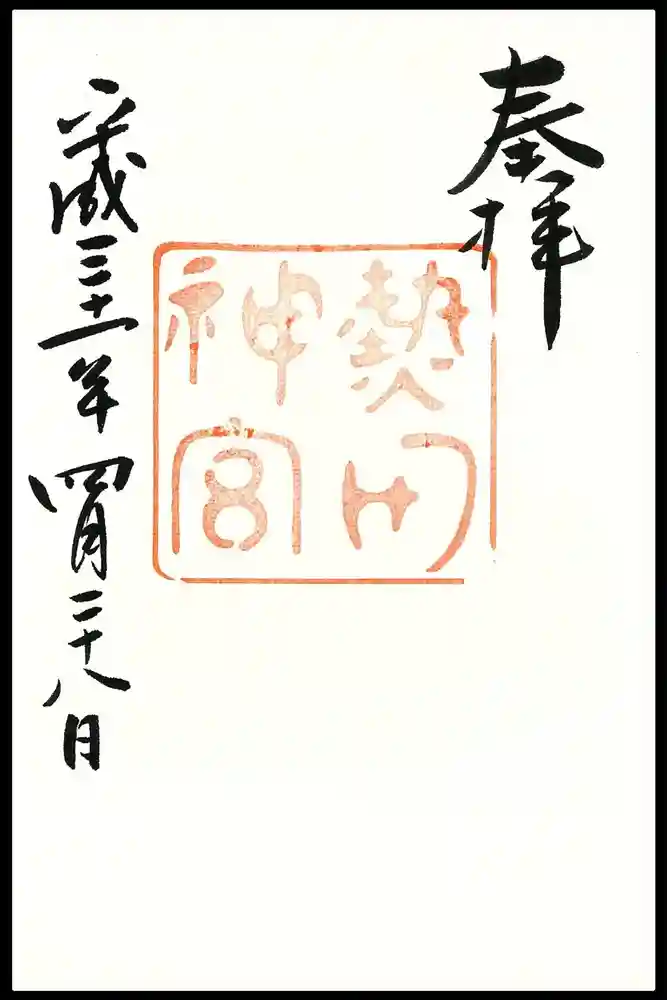 奉拝
熱田神宮
平成三十一年四月二十八日